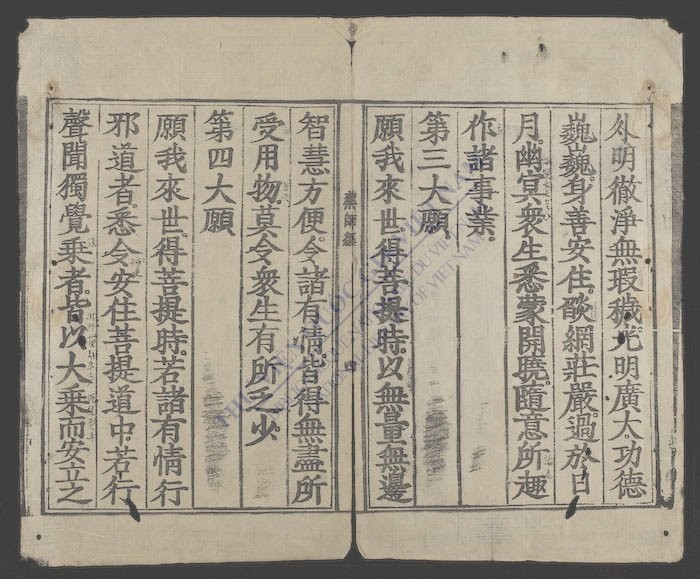 外明徹淨無瑕穢。光明廣大。功德
巍巍。身善安住。燄網莊嚴。過於日
月。幽冥衆生。悉蒙開曉。隨意所趣
作諸事業。
第三大願
願我來世。得菩提時。以無量無邊
藥師經
智慧方便。令諸有情。皆得無盡所
受用物。莫令衆生有所乏少
第四大願
願我來世。得菩提時。若諸有情行
邪道者。悉令安住菩提道中。若行
聲聞獨覺乘者。皆以大乘而安立之
THƯ VIỆN QUỐC GIA VIỆT NAM
NATIONAL LIBRARY OF VIETNAM